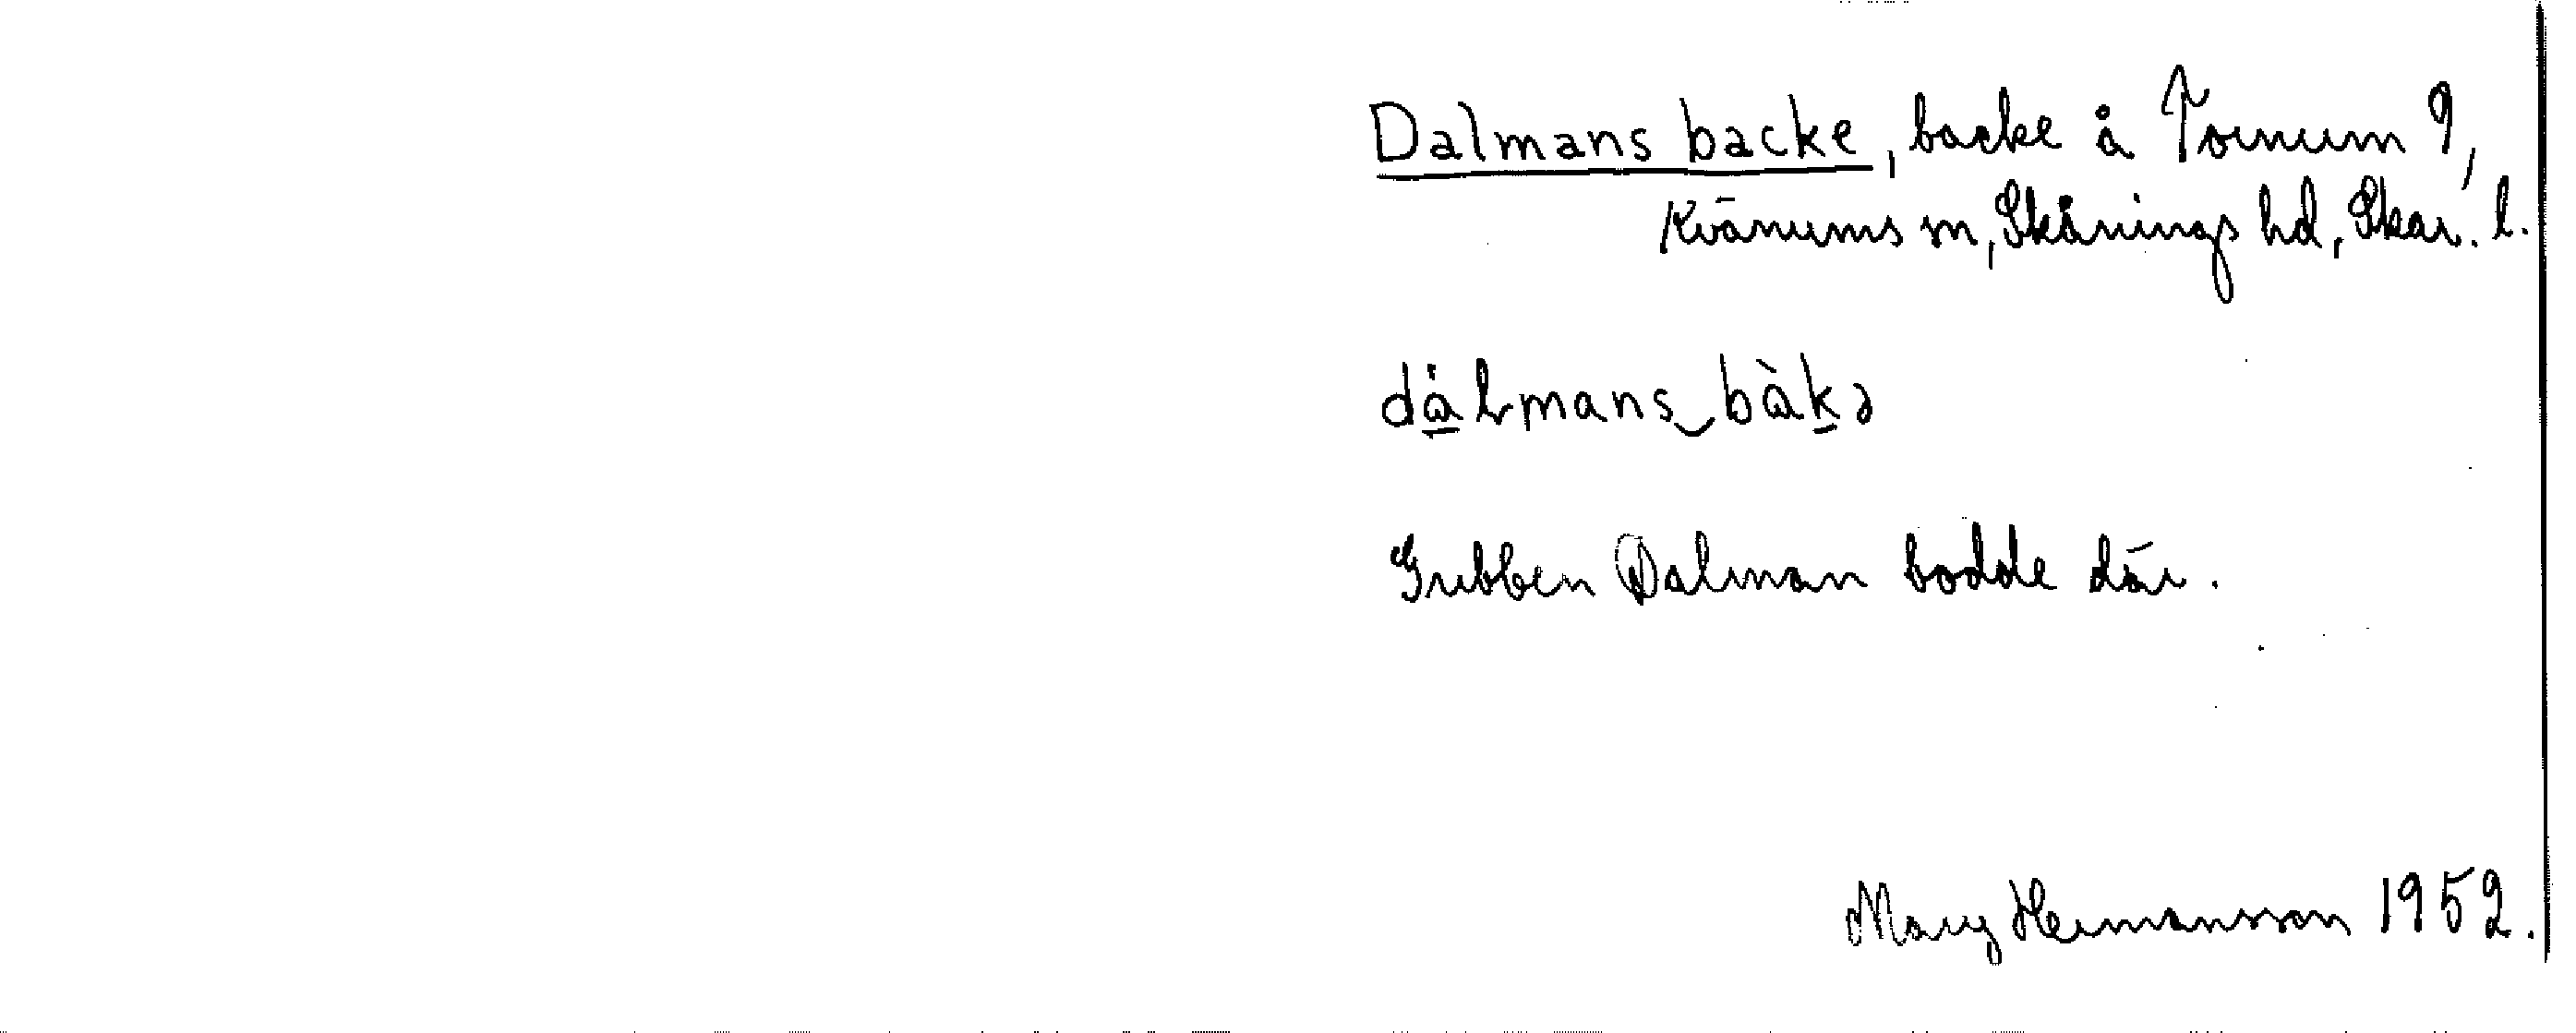 Dalmans backe, backe å Tornum 9,
Kvänums sn, Skånings hd, Skar. l.
dàlmans‿bàkə
Gubben Dalman bodde där.
Mary Hermansson 1952.